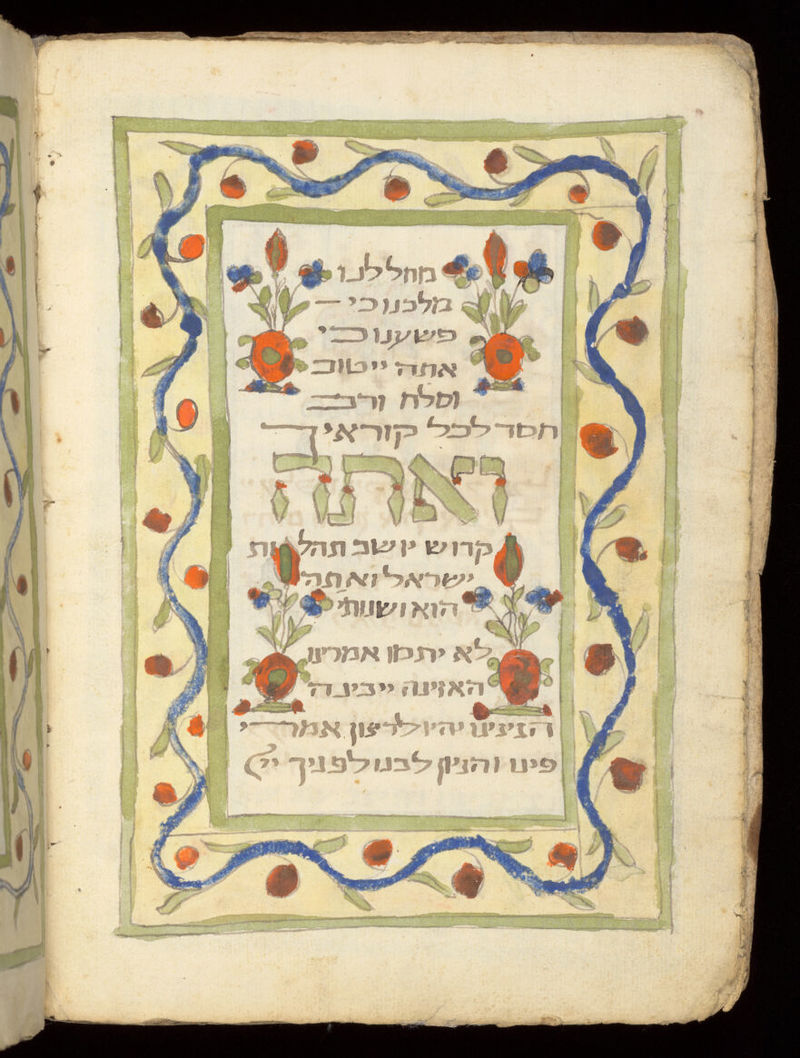 מחל לנו
מלכנו כי
פשענו כי
אתה ייי טוב
וסלח ורב
חסד לכל קוראיך
ואתה
קדוש יושב תהלות
ישראל ואתה
הוא ושנותי
לא יתמו אמרינו
האזינה ייי בינה
הגיגינו יהיו לרצון אמרי
פינו והגיון לבנו לפניך ייי